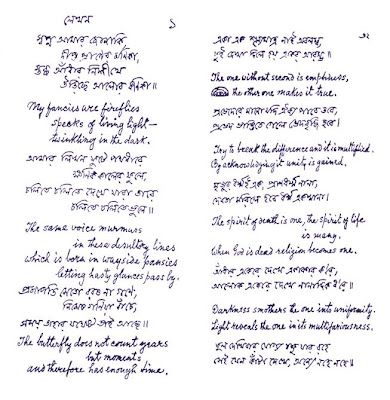 লেখন ১
স্বপ্ন আমার জোনাকি,
দীপ্ত প্রাণের মণিকা,
স্তব্ধ আঁধার নিশীথে
উড়িছে আলোর কণিকা॥
My fancies are fireflies
specks of living light —
twinkling in the dark.
আমার লিখন ফুটে পথধারে
ক্ষণিক কালের ফুলে,
চলিতে চলিতে দেখে যারা তারে
চলিতে চলিতে ভুলে॥
The same voice murmurs
in these desultory lines
which is born in wayside pansies
letting hasty glances pass by.
প্রজাপতি সেতো বরষ না গণে,
নিমেষ গণিয়া বাঁচে,
সময় তাহার যথেষ্ট তাই আছে॥
The butterfly does not count years
but moments
and therefore has enough time.
একা এক শূন্যমাত্র নাই অবলম্ব,
দুই দেখা দিলে হয় একের আরম্ভ॥
The one without second is emptiness,
the other one makes it true.
প্রভেদেরে মানো যদি ঐক্য পাবে তবে,
প্রভেদ ভাঙিতে গেলে ভেদবুদ্ধি হবে॥
Try to break the difference and it is multiplied.
By acknowledging it unity is gained.
মৃত্যুর ধর্মই এক, প্রাণধর্ম নানা,
দেবতা মরিলে হবে ধর্ম একখানা॥
The spirit of death is one, the spirit of life
is many.
When God is dead religion becomes one.
আঁধার একেরে দেখে একাকার ক'রে,
আলোক একেরে দেখে নানাদিক ধ'রে॥
Darkness smothers the one into uniformity.
Light reveals the one in its multifariousness.
ফুল দেখিবার যোগ্য চক্ষু যার রহে
সেই যেন কাঁটা দেখে, অন্যে নহে নহে॥